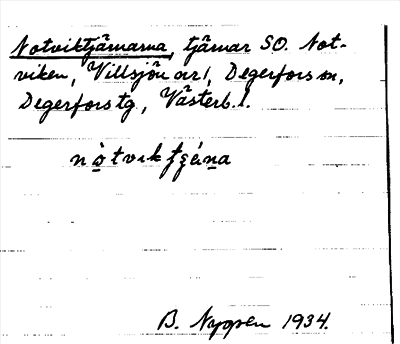 Notviktjärnarna, tjärnar SO. Not-
viken, Villsjön nr 1, Degerfors sn,
Degerfors tg, Västerb. l.
B. Nygren 1934.